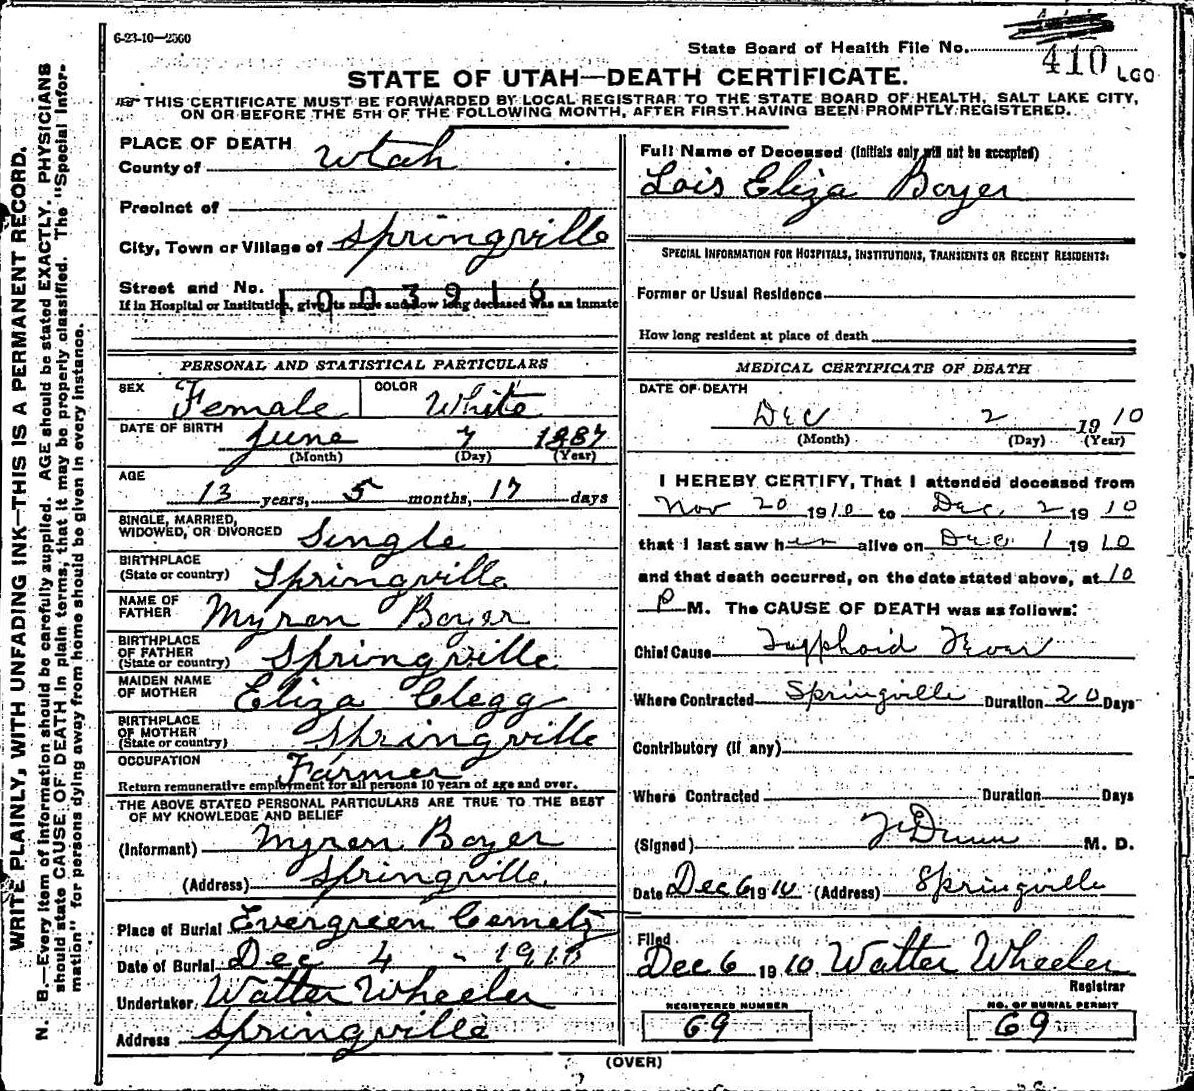 6-23-10—2560
State Board of Health File No.
410 LGO
STATE OF UTAH—DEATH CERTIFICATE.
THIS CERTIFICATE MUST BE FORWARDED BY LOCAL REGISTRAR TO THE STATE BOARD OF HEALTH, SALT LAKE CITY,
ON OR BEFORE THE 5TH OF THE FOLLOWING MONTH, AFTER FIRST HAVING BEEN PROMPTLY REGISTERED.
WRITE PLAINLY, WITH UNFADING INK—THIS IS A PERMANENT RECORD.
N. B.—Every item of information should be carefully supplied. AGE should be stated EXACTLY. PHYSICIANS
should state CAUSE OF DEATH in plain terms, that it may be properly classified. The "Special Infor-
mation" for persons dying away from home should be given in every instance.
PLACE OF DEATH
County of Utah
Precinct of
City, Town or Village of Springville
Street and No.
1003916
If in Hospital or Institution, give its name and how long deceased was an inmate
PERSONAL AND STATISTICAL PARTICULARS
SEX Female COLOR White
DATE OF BIRTH June 7 1887
(Month) (Day) (Year)
AGE
13 years, 5 months, 17 days
SINGLE, MARRIED,
WIDOWED, OR DIVORCED Single
BIRTHPLACE
(State or country) Springville
NAME OF
FATHER Myron Boyer
BIRTHPLACE
OF FATHER
(State or country) Springville
MAIDEN NAME
OF MOTHER Eliza Clegg
BIRTHPLACE
OF MOTHER
(State or country) Springville
OCCUPATION Farmer
Return remunerative employment for all persons 10 years of age and over.
THE ABOVE STATED PERSONAL PARTICULARS ARE TRUE TO THE BEST
OF MY KNOWLEDGE AND BELIEF
(Informant) Myron Boyer
(Address) Springville
Place of Burial Evergreen Cemety
Date of Burial Dec 4 - 1910
Undertaker Walter Wheeler
Address Springville
Full Name of Deceased (Initials only will not be accepted)
Lois Eliza Boyer
SPECIAL INFORMATION FOR HOSPITALS, INSTITUTIONS, TRANSIENTS OR RECENT RESIDENTS:
Former or Usual Residence
How long resident at place of death
MEDICAL CERTIFICATE OF DEATH
DATE OF DEATH
Dec 2 1910
(Month) (Day) (Year)
I HEREBY CERTIFY, That I attended deceased from
Nov 20 1910 to Dec. 2 1910
that I last saw her alive on Dec 1 1910
and that death occurred, on the date stated above, at 10
P M. The CAUSE OF DEATH was as follows:
Chief Cause Typhoid Fever
Where Contracted Springville Duration 20 Days
Contributory (if any)
Where Contracted Duration Days
(Signed) Dunn M. D.
Date Dec 6 1910 (Address) Springville
Filed
Dec 6 1910 Walter Wheeler
Registrar
REGISTERED NUMBER
69
NO. OF BURIAL PERMIT
69
(OVER)